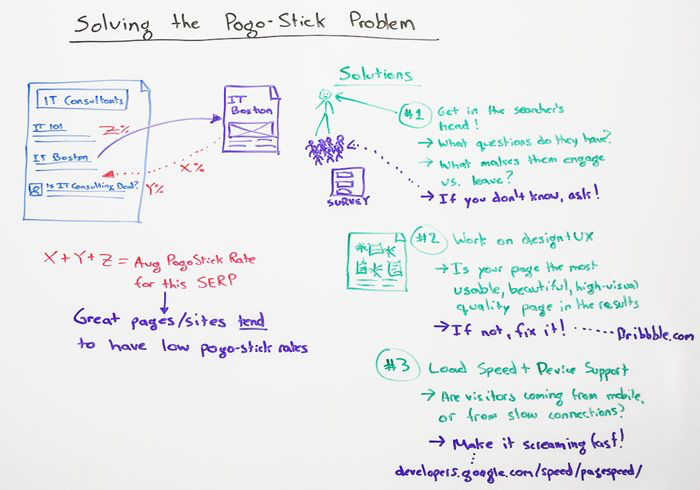 Solving the Pogo-Stick Problem
IT Consultants
IT 101
Z%
IT Boston
Is IT Consulting Dead?
Y%
X%
IT
Boston
X + Y + Z = Avg PogoStick Rate
for this SERP
Great pages/sites tend
to have low pogo-stick rates
Solutions
#1
Get in the searcher's
head!
→ What questions do they have?
→ What makes them engage
vs. leave?
→ If you don't know, ask!
SURVEY
#2
Work on design+UX
→ Is your page the most
usable, beautiful, high-visual
quality page in the results
→ If not, fix it! ...... Dribbble.com
#3
Load Speed + Device Support
→ Are visitors coming from mobile,
or from slow connections?
→ Make it screaming fast!
developers.google.com/speed/pagespeed/